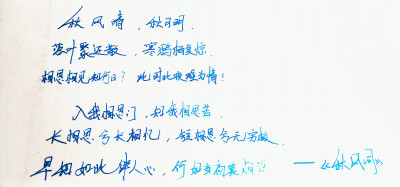 秋风清,秋月明,
落叶聚还散,寒鸦栖复惊.
相思相见知何日?此时此夜难为情!
入我相思门,知我相思苦.
长相思兮长相忆,短相思兮无穷极.
早知如此绊人心,何如当初莫相识 ——《秋风词》